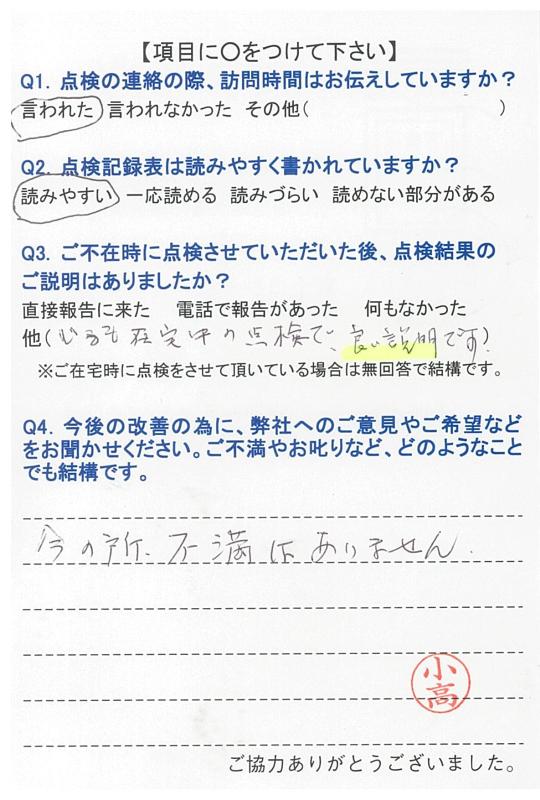 【項目に〇をつけて下さい】
Q1. 点検の連絡の際、訪問時間はお伝えしていますか？
言われた 言われなかった その他（ ）
Q2. 点検記録表は読みやすく書かれていますか？
読みやすい 一応読める 読みづらい 読めない部分がある
Q3. ご不在時に点検させていただいた後、点検結果の
ご説明はありましたか？
直接報告に来た 電話で報告があった 何もなかった
他（いつも在宅中の点検で、良い説明です）
※ご在宅時に点検をさせて頂いている場合は無回答で結構です。
Q4. 今後の改善の為に、弊社へのご意見やご希望など
をお聞かせください。ご不満やお叱りなど、どのようなこと
でも結構です。
今の所、不満はありません.
小高
ご協力ありがとうございました。